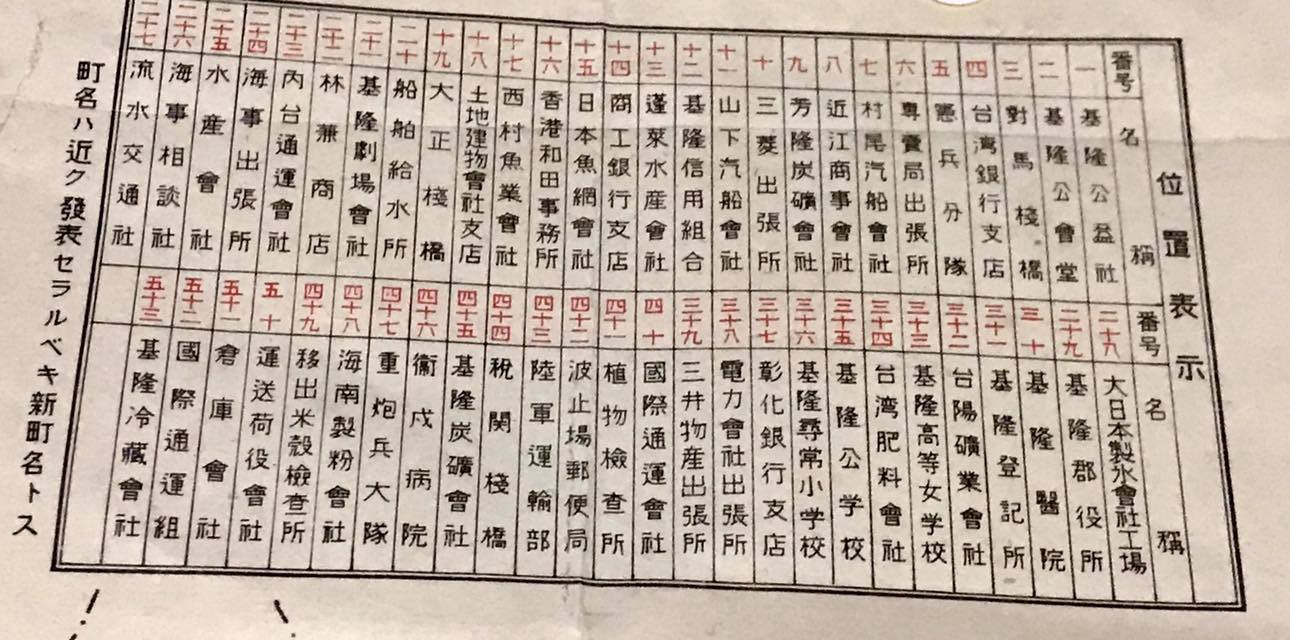 位置表示
番号 名稱
一 基隆公益社
二 基隆公會堂
三 對馬棧橋
四 台湾銀行支店
五 憲兵分隊
六 專賣局出張所
七 村尾汽船會社
八 近江商事會社
九 芳隆炭礦會社
十 三菱出張所
十一 山下汽船會社
十二 基隆信用組合
十三 蓬萊水産會社
十四 商工銀行支店
十五 日本魚網會社
十六 香港和田事務所
十七 西村魚業會社
十八 土地建物會社支店
十九 大正棧橋
二十 船舶給水所
二十一 基隆劇場會社
二十二 林兼商店
二十三 内台通運會社
二十四 海事出張所
二十五 水産會社
二十六 海事相談社
二十七 流水交通社
番号 名稱
二十八 大日本製氷會社工場
二十九 基隆郡役所
三十 基隆醫院
三十一 基隆登記所
三十二 台陽礦業會社
三十三 基隆高等女学校
三十四 台湾肥料會社
三十五 基隆公学校
三十六 基隆尋常小学校
三十七 彰化銀行支店
三十八 電力會社出張所
三十九 三井物産出張所
四十 國際通運會社
四十一 植物檢查所
四十二 波止場郵便局
四十三 陸軍運輸部
四十四 稅関棧橋
四十五 基隆炭礦會社
四十六 衞戍病院
四十七 重炮兵大隊
四十八 海南製粉會社
四十九 移出米穀檢查所
五十 運送荷役會社
五十一 倉庫會社
五十二 國際通運組
五十三 基隆冷藏會社
町名ハ近ク發表セラルベキ新町名トス